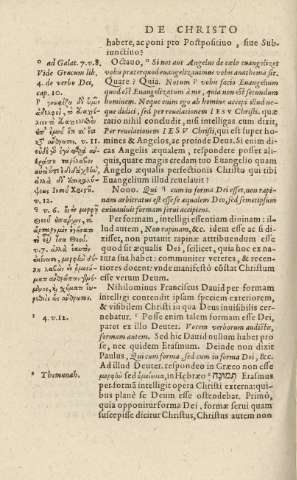 DE CHRISTO
habere, ac poni pro Postpositivo, siue Sub-
iunctiuo?
Octauo, Si nos aut Angelus de cœlo euangelizet
vobis præterquod euangelizauimus vobis anathema sit.
Quare? Quia. Notum vobis facio Euangelium
quod est Euangelizatum à me, quia non est secundum
hominem. Neque enim ego ab homine accepi illud ne-
que didici, sed per reuelationem IESV Christi, quæ
ratio nihil concludit, nisi intelligas cum dixit,
Per reuelationem IESV Christi, qui est super ho-
mines & Angelos, ac proinde Deus. Si enim di-
cas Angelis æqualem, respondere posset ali-
quis, quare magis credam tuo Euangelio quam
Angelo æqualis perfectionis Christo qui tibi
Euangelium illud reuelauit?
Nono. Qui cum in forma Dei esset, non rapi-
nam arbitratus est esse se æqualem Deo, sed semetipsum
exinaniuit formam serui accipiens.
Per formam, intelligi essentiam diuinam: il-
lud autem, Non rapinam, &c. idem esse ac si di-
xisset, non putauit rapinæ attribuendum esse
quod sit æqualis Dei, scilicet, quia hoc ex na-
tura sua habet: communiter veteres, & recen-
tiores docent: vnde manifestò cōstat Christum
esse verum Deum.
Nihilominus Franciscus Dauid per formam
intelligi contendit ipsam speciem exteriorem,
& visibilem Christi in qua Deus inuisibilis cer-
nebatur. Posse enim talem formam esse Dei,
patet ex illo Deuter. Vocem verborum audistis,
formam autem. Sed hîc Dauid nullum habet pro
se, nec quidem Erasmum. Deinde non dixit
Paulus, Qui cum forma, sed cum in forma Dei, &c.
Ad illud Deuter. respondeo in Græco non esse
μορφὼ sed ὁμοίωμα, in Hebræo תמונה. Erasmus
per formā intelligit opera Christi externa: qui-
bus planè se Deum esse ostendebat. Primò,
quia opponitur forma Dei, formæ serui quam
suscepisse dicitur Christus, Christus autem non
ad Galat. 7. v. 8.
Vide Græcum lib.
4. de verbo Dei,
cap. 10.
v. 11.
v. 12.
v. 6.
v. 7.
4. v. 12.
Themunah.